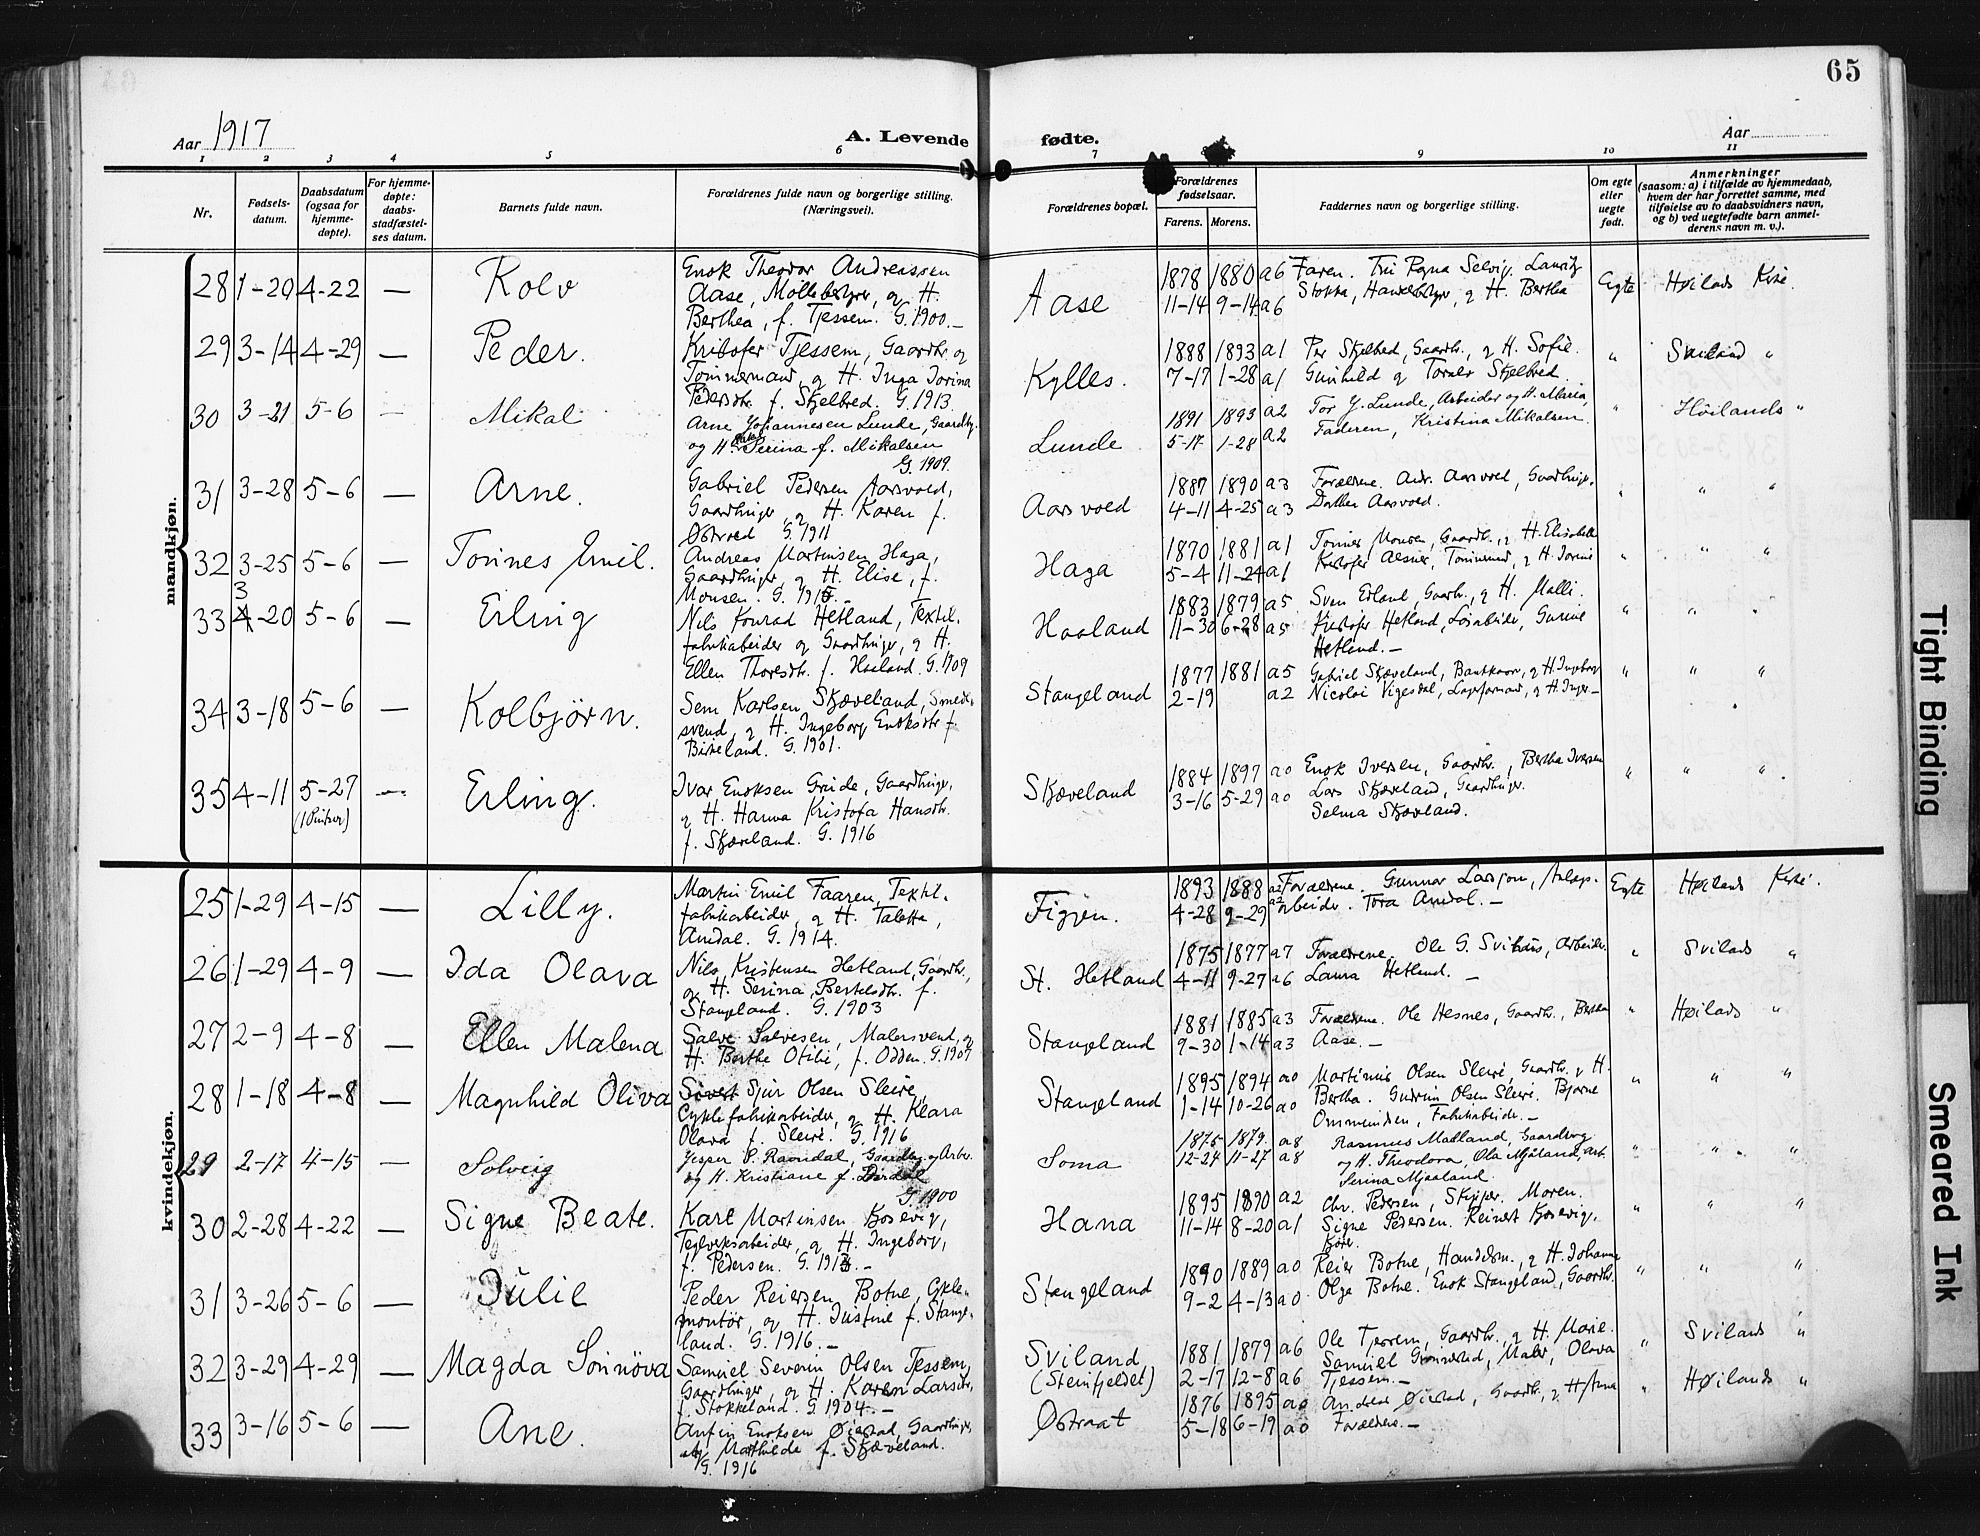 65
Aar 1917
A. Levende fødte.
Aar
1 2 3 4 5 6 7 9 10 11
Nr.
Fødsels-
datum.
Daabsdatum
(ogsaa for
hjemme-
døpte).
For hjemme-
døpte:
daabs-
stadfæstel-
ses datum.
Barnets fulde navn.
Forældrenes fulde navn og borgerlige stilling.
(Næringsvei).
Forældrenes bopæl.
Forældrenes
fødselsaar.
Farens. Morens.
Faddernes navn og borgerlige stilling.
Om egte
eller
uegte
født.
Anmerkninger
(saasom: a) i tilfælde av hjemmedaab,
hvem der har forrettet samme, med
tilføielse av to daabsvidners navn,
og b) ved uegtefødte barn anmel-
derens navn m. v.).
mandkjøn.
28 1-20 4-22 — Rolv
Enok Theodor Andreassen
Aase, Møllebestyrer, og H.
Berthea, f. Tjessem. G. 1900.—
Aase
1878 1880 a6 Faren. Selvig. Lauritz
11-14 9-14 a6 Stokka, og H. Bertha
Egte Høilands Kirke.
29 3-14 4-29 — Peder.
Kristofer Tjessem, Gaardbr. og
Tømmermand, og H. Inga Jorina
Pedersdtr. f. Skjelbred. G. 1913.
Kylles.
1888 1893 a1 Per Skjelbred, Gaardbr., og H. Sofie.
7-17 1-28 a1 Gunhild og Skjelbred.
" Sviland "
30 3-21 5-6 — Mikal
Arne Johannesen Lunde, Gaardbg.
og H. Serina f. Mikalsen
G. 1909.
Lunde
1891 1893 a2 Tor Y. Lunde, Arbeider og H. Maria,
5-17 1-28 a2 Faderen, Kristina Mikalsen.
" Høilands "
31 3-28 5-6 — Arne.
Gabriel Pedersen Aarsvold,
Gaardbruger, og H. Karen f.
Østvold G. 1911
Aarsvold
1887 1890 a3 Forældrene. Andr. Aarsvold, Gaardbruger.
4-11 4-25 a3 Dorthea Aarsvold.
" " "
32 3-25 5-6 — Tønnes Emil.
Andreas Martinsen Haga,
Gaardbruger, og H. Elise, f.
Monsen. G. 1915.—
Haga
1870 1881 a1 Tønnes Monsen, Gaardbr., og H. Elisabeth
5-4 11-24 a1 Kristofer Tømmermd, og H. Jorine
" " "
33 3 4-20 5-6 — Erling
Nils Konrad Hetland, Textil-
fabrikarbeider og Gaardbruger, og H.
Ellen Thoresdtr. f. Haaland. G. 1909
Haaland
1883 1879 a5 Sven Gaardbr., og H. Malli.
11-30 6-28 a5 Kristofer Hetland, Gurine
Hetland.—
" " "
34 3-18 5-6 — Kolbjørn.
Sem Karlsen Skjæveland, Smed-
svend, og H. Ingeborg Enoksdtr. f.
Birkeland. G. 1901.
Stangeland
1877 1881 a5 Gabriel Skjæveland, og H. Ingeborg
2-19 a2 Nicolai Vigesdal, og H. Inger—
" " "
35 4-11 5-27 — Erling.
Ivar Enoksen Grude, Gaardbruger,
og H. Hanna Kristofa Hansdtr.
f. Skjæveland. G. 1916
Skjæveland
1884 1897 a0 Enok Iversen, Gaardbr., Bertha Iversen
3-16 5-29 a0 Lars Skjæveland, Gaardbruger.
Selma Skjæveland.
" " "
kvindekjøn.
25 1-29 4-15 — Lilly.
Martin Emil Faaren, Textil-
fabrikarbeider, og H. Talette,
Amdal. G. 1914.
Figjen.
1893 1888 a2 Forældrene. Gunnar Larsson, Anlegs-
4-28 9-29 a2 arbeider. Tora Amdal.—
Egte Høilands Kirke.
26 1-29 4-9 — Ida Olava
Nils Kristensen Hetland, Gaardbr.,
og H. Serina Bertelsdtr. f.
Stangeland. G. 1903
St. Hetland
1875 1877 a7 Forældrene. Ole G. Svihus, Arbeider.
4-11 9-27 a6 Laura Hetland.—
" Svilands "
27 2-9 4-8 — Ellen Malena
Salve Salvesen, Malersvend, og
H. Berthe Otilie, f. Odden. G. 1907
Stangeland
1881 1885 a3 Forældrene. Ole Hesnes, Gaardbr., Bertha
9-30 1-14 a3 Aase.—
" Høilands "
28 1-18 4-8 — Magnhild Oliva
Sivert Sjur Olsen Sleire,
Cyklefabrikarbeider, og H. Klara
Olava f. Sleire. G. 1916
Stangeland
1895 1894 a0 Martinus Olsen Sleire, Gaardbr. og H.
1-14 10-26 a0 Bertha. Gudrun Olsen Sleire. Bjarne
Ommundsen, Fabrikarbeider.—
" " "
29 2-17 4-15 — Solveig
Jesper P. Ravndal, Gaardbg. og Arb.
og H. Kristiane f. Dirdal
G. 1900
Soma
1875 1879 a8 Rasmus Matland, Gaardbrg
12-24 11-27 a8 og H. Theodora, Ola Mjåland, Arb.
Serina Mjaaland.
" " "
30 2-28 4-22 — Signe Beate.
Karl Martinsen Kosevig,
Teglverksarbeider, og H. Ingeborg,
f. Pedersen. G. 1913.—
Hana
1895 1890 a2 Chr. Pedersen, Skipper. Moren.
11-14 8-20 a1 Signe Pedersen. Reinert Kosevig,
" " "
31 3-26 5-6 — Julie
Peder Reiersen Botne, Cykle-
montør, og H. Justine f. Stange-
land. G. 1916.—
Stangeland
1890 1889 a0 Reier Botne, Handelsm., og H. Johanne
9-2 4-13 a0 Olga Botne. Enok Stangeland, Gaardbr.
" " "
32 3-29 4-29 — Magda Sønnøva
Samuel Severin Olsen Tjessem,
Gaardbruger, og H. Karen Larsdtr.
f. Stokkeland. G. 1904.—
Sviland
(Steinfjeldet)
1881 1879 a6 Ole Tjessem, Gaardbr., og H. Marie.
2-17 12-8 a6 Samuel Maler, Olava
Tjessem.—
" Svilands "
33 3-16 5-6 — Ane.
Anfin Enoksen Øiestad, Gaardbruger,
Mathilde f. Skjæveland.
G. 1916
Østraat
1876 1895 a0 Andreas Øiestad, Gaardbr., og H. Anna
5-18 6-19 a0 Forældrene.—
" Høilands "
Tight Binding
Smeared Ink